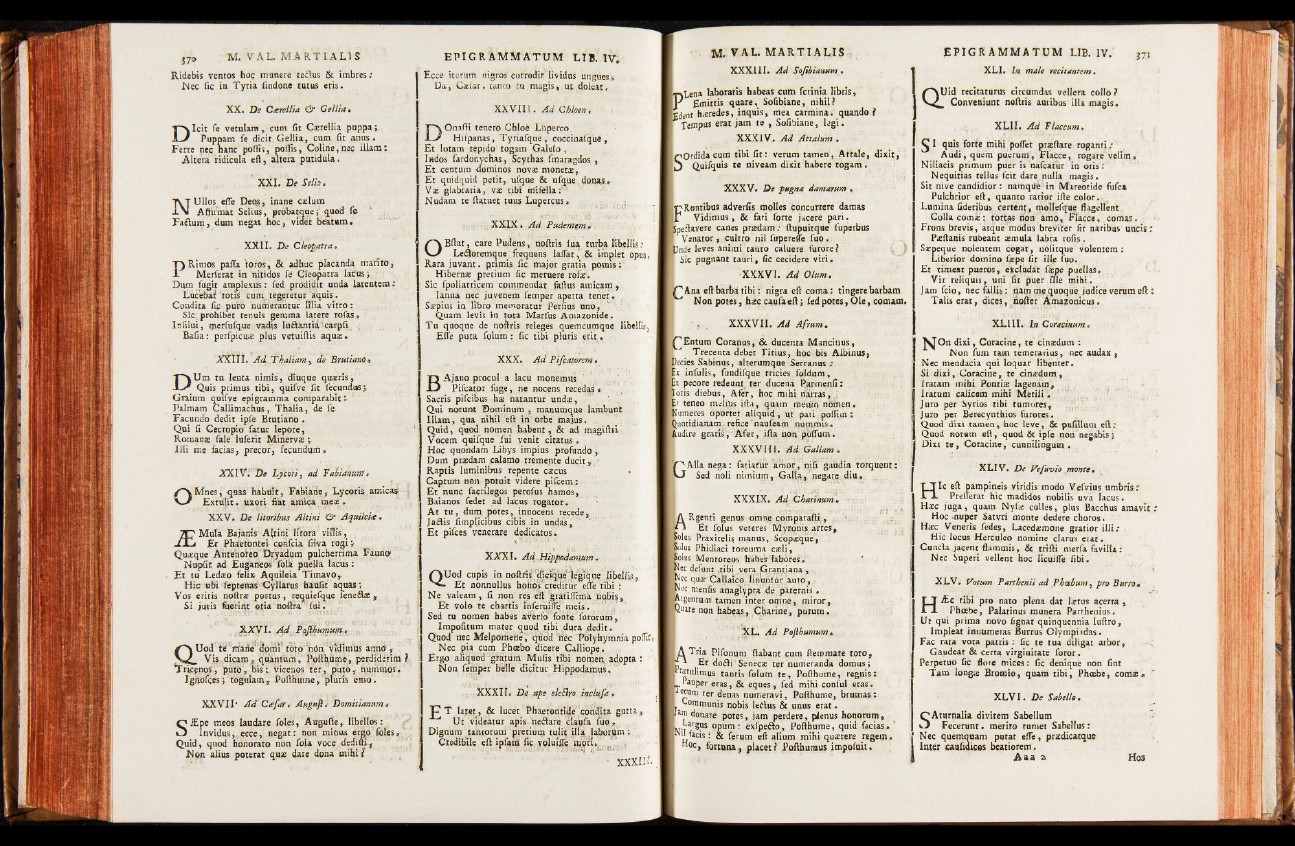 370 M. VAL. MARTIALIS
Ridebis ventos hoc munere tectus & imbres:
Nec sic in Tyria sindone tutus eris.
XX. De Cærellia & Gellia.
DIcit se vetulam, cum sit Cærellia puppa;
Puppam se dicit Gellia, cum sit anus.
Ferre nec hanc possis, possis, Coline, nec illam:
Altera ridicula est, altera putidula.
XXI. De Selio.
NUllos esse Deos, inane cælum
Affirmat Selius, probatque; quod se
Factum, dum negat hoc, videt beatum.
XXII. De Cleopatra.
PRimos passa toros, & adhuc placanda marito,
Merserat in nitidos se Cleopatra lacus;
Dum fugit amplexus: sed prodidit unda latentem:
Lucebat totis cum tegeretur aquis.
Condita sic puro numerantur lilia vitro:
Sic prohibet tenuis gemma latere rosas.
Insilui, mersusque vadis luctantia carpsi
Basia: perspicuæ plus vetuistis aquæ.
XXIII. Ad Thaliam, de Brutiano.
DUm tu lenta nimis, diuque quæris,
Quis primus tibi, quisve sit secundus;
Graium quisve epigramma comparabit:
Palmam Callimachus, Thalia, de se
Facundo dedit ipse Brutiano.
Qui si Cecropio satur lepore,
Romanæ sale luserit Minervæ;
Illi me facias, precor, secundum.
XXIV. De Lycori, ad Fabianum.
OMnes, quas habuit, Fabiane, Lycoris amicas
Extulit. uxori fiat amica meæ.
XXV. De litoribus Altini & Aquileiæ.
ÆMula Bajanis Altini litora villis,
Et Phaetontei conscia silva rogi;
Quæque Antenoreo Dryadum pulcherrima Fauno
Nupsit ad Euganeos sola puella lacus:
Et tu Ledæo felix Aquileia Timavo,
Hic ubi septenas Cyllarus hausit aquas;
Vos eritis nostræ portus, requiesque senectæ,
Si juris fuerint otia nostra sui.
XXVI. Ad Posthumum.
QUod te mane domi toto non vidimus anno,
Vis dicam, quantum, Posthume, perdiderim?
Tricenos, puto, bis: vicenos ter, puto, nummos.
Ignosces; togulam, Posthume, pluris emo.
XXVII. Ad Cæsar. August. Domitianum.
SÆpe meos laudare soles, Auguste, libellos:
Invidus, ecce, negat: non minus ergo soles.
Quid, quod honorato non sola voce dedisti,
Non alius poterat quæ dare dona mihi?
EPIGRAMMATUM LIB. IV.
Ecce iterum nigros corrodit lividus ungues.
Da, Cæsar, tanto tu magis, ut doleat.
XXVIII. Ad Chloen.
DOnasti tenero Chloe Luperco
Hispanas, Tyriasque, coccinasque,
Et lotam tepido togam Galeso,
Indos sardonychas, Scythas smaragdos,
Et centum dominos novæ monetæ,
Et quidquid petit, usque & usque donas.
Væ glabraria, væ tibi misella:
Nudam te statuet tuus Lupercus.
XXIX. Ad Pudentem.
OBstat, care Pudens, nostris sua turba libellis:
Lectoremque frequens lassat, & implet opus.
Rara juvant. primis sic major gratia pomis:
Hibernæ pretium sic meruere rosæ.
Sic spoliatricem commendat fastus amicam,
Ianua nec juvenem semper aperta tenet.
Sæpius in libro memoratur Persius uno,
Quam levis in tota Marsus Amazonide.
Tu quoque de nostris releges quemcumque libellis,
Esse puta solum: sic tibi pluris erit.
XXX. Ad Piscatorem.
BAjano procul a lacu monemus
Piscator fuge, ne nocens recedas.
Sacris piscibus hæ natantur undæ,
Qui norunt Dominum, manumque lambunt
Illam, qua nihil est in orbe majus.
Quid, quod nomen habent, & ad magistri
Vocem quisque sui venit citatus.
Hoc quondam Libys impius profundo,
Dum prædam calamo tremente ducit,
Raptis luminibus repente cæcus
Captum non potuit videre piscem:
Et nunc sacrilegos perosus hamos,
Baianos sedet ad lacus rogator.
At tu, dum potes, innocens recede,
Jactis simplicibus cibis in undas,
Et pisces venerare dedicatos.
XXXI. Ad Hippodamum.
QUod cupis in nostris dicique legique libellis,
Et nonnullus honos creditur esse tibi:
Ne valeam, si non res est gratissima nobis,
Et volo te chartis inseruisse meis.
Sed tu nomen habes averso fonte sororum,
Impositum mater quod tibi dura dedit.
Quod nec Melpomene, quod nec Polyhymnia possit,
Nec pia cum Phœbo dicere Calliope.
Ergo aliquod gratum Musis tibi nomen adopta:
Non semper belle dicitur Hippodamus.
XXXII. De ape electro inclusa.
ET latet, & lucet Phaetontide condita gutta,
Ut videatur apis nectare clausa suo.
Dignum tantorum pretium tulit illa laborum:
Credibile est ipsam sic voluisse mori.
XXXIII.
M. VAL. MARTIALIS
XXXIII. Ad Sosibianum.
PLena laboratis habeas cum scrinia libris,
Emittis quare, Sosibiane, nihil?
Edent hæredes, inquis, mea carmina. quando?
Tempus erat jam te, Sosibiane, legi.
XXXIV. Ad Attalum.
SOrdida cum tibi sit: verum tamen, Attale, dixit,
Quisquis te niveam dixit habere togam.
XXXV. De pugna damarum.
FRontibus adversis molles concurrere damas
Vidimus, & fati sorte jacere pari.
Spectavere canes prædam: stupuitque superbus
Venator, cultro nil superesse suo.
Unde leves animi tanto caluere furore?
Sic pugnant tauri, sic cecidere viri.
XXXVI. Ad Olum.
CAna est barba tibi: nigra est coma: tingere barbam
Non potes, hæc causa est; sed potes, Ole, comam.
XXXVII. Ad Afrum.
CEntum Coranus, & ducenta Mancinus,
Trecenta debet Titius, hoc bis Albinus,
Decies Sabinus, alterumque Serranus:
Ex insulis, fundisque tricies soldum,
Ex pecore redeunt ter ducena Parmensi:
Totis diebus, Afer, hoc mihi narras,
Et teneo melius ista, quam meum nomen.
Numeres oportet aliquid, ut pati possim:
Quotidianam refice nauseam nummis.
Audire gratis, Afer, ista non possum.
XXXVIII. Ad Gallam.
GAlla nega: satiatur amor, nisi gaudia torquent:
Sed noli nimium, Galla, negare diu.
XXXIX. Ad Charinum.
ARgenti genus omne comparasti,
Et solus veteres Myronis artes,
Solus Praxitelis manus, Scopæque,
Solus Phidiaci toreuma cæli,
Solus Mentoreos habes labores.
Nec desunt tibi vera Grantiana,
Nec quæ Callaico linuntur auro,
Nec mensis anaglypta de paternis.
Argentum tamen inter omne, miror,
Quare non habeas, Charine, purum.
XL. Ad Posthumum.
ATria Pisonum stabant cum stemmate toto,
Et docti Senecæ ter numeranda domus;
Prætulimus tantis solum te, Posthume, regnis:
Pauper eras, & eques, sed mihi consul eras.
Tecum ter denas numeravi, Posthume, brumas:
Communis nobis lectus & unus erat.
Jam donare potes, jam perdere, plenus honorum,
Largus opum: exspecto, Posthume, quid facias.
Nil facis: & serum est alium mihi quærere regem.
Hoc, fortuna, placet? Posthumus imposuit.
EPIGRAMMATUM LIB. IV. 371
XLI. In male recitantem.
QUid recitaturus circumdas vellera collo?
Conveniunt nostris auribus illa magis.
XLII. Ad Flaccum.
SI quis forte mihi posset præstare roganti:
Audi, quem puerum, Flacce, rogare velim.
Niliacis primum puer is nascatur in oris:
Nequitias tellus scit dare nulla magis.
Sit nive candidior: namque in Mareotide fusca
Pulchrior est, quanto rarior iste color.
Lumina sideribus certent, mollesque flagellent
Colla comæ: tortas non amo, Flacce, comas.
Frons brevis, atque modus breviter sit naribus uncis:
Pæstanis rubeant æmula labra rosis.
Sæpeque nolentem cogat, nolitque volentem:
Liberior domino sæpe sit ille suo.
Et timeat pueros, excludat sæpe puellas.
Vir reliquis, uni sit puer ille mihi.
Jam scio, nec fallis: nam me quoque judice verum est:
Talis erat, dices, noster Amazonicus.
XLIII. In Coracinum.
NOn dixi, Coracine, te cinædum:
Non sum tam temerarius, nec audax,
Nec mendacia qui loquar libenter.
Si dixi, Coracine, te cinædum,
Iratam mihi Pontiæ lagenam,
Iratum calicem mihi Metili.
Juro per Syrios tibi tumores,
Juro per Berecynthios furores.
Quod dixi tamen, hoc leve, & pusillum est:
Quod notum est, quod & ipse non negabis;
Dixi te, Coracine, cunnilingum.
XLIV. De Vesuvio monte.
HIc est pampineis viridis modo Vesvius umbris:
Presserat hic madidos nobilis uva lacus.
Hæc juga, quam Nysæ colles, plus Bacchus amavit:
Hoc nuper Satyri monte dedere choros.
Hæc Veneris sedes, Lacedæmone gratior illi:
Hic locus Herculeo nomine clarus erat.
Cuncta jacent flammis, & tristi mersa favilla:
Nec Superi vellent hoc licuisse sibi.
XLV. Votum Parthenii ad Phœbum, pro Burro.
HÆc tibi pro nato plena dat lætus acerra,
Phœbe, Palatinus munera Parthenius.
Ut qui prima novo signat quinquennia lustro,
Impleat innumeras Burrus Olympiadas.
Fac rata vota patris: sic te tua diligat arbor,
Gaudeat & certa virginitate soror.
Perpetuo sic flore mices: sic denique non sint
Tam longæ Bromio, quam tibi, Phœbe, comæ.
XLVI. De Sabello.
SAturnalia divitem Sabellum
Fecerunt. merito tumet Sabellus:
Nec quemquam putat esse, prædicatque
Inter causidicos beatiorem.
Aaa 2 Hos